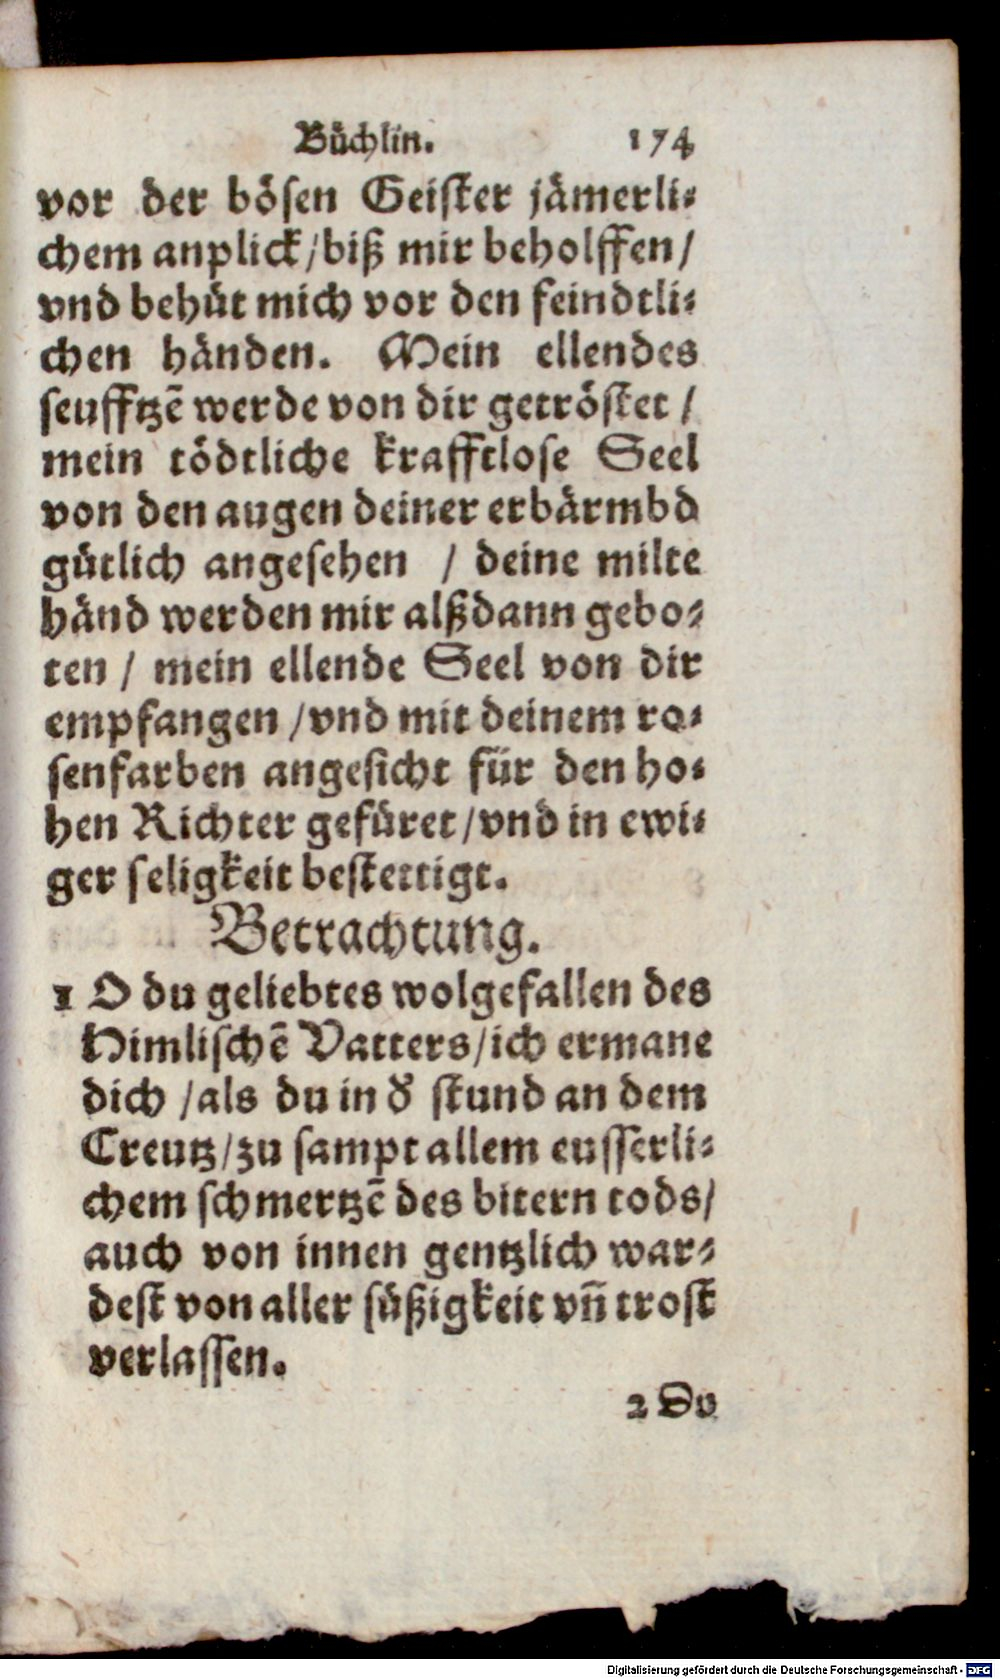 Büchlin. 174
vor der bösen Geister jämerli⸗
chem anplick/biß mir beholffen/
vnd behüt mich vor den feindtli⸗
chen händen. Mein ellendes
seufftzē werde von dir getröstet /
mein tödtliche krafftlose Seel
von den augen deiner erbärmbd
gütlich angesehen / deine milte
händ werden mir alßdann gebo⸗
ten / mein ellende Seel von dir
empfangen /vnd mit deinem ro⸗
senfarben angesicht für den ho⸗
hen Richter gefüret/vnd in ewi⸗
ger seligkeit bestettigt.
Betrachtung.
1 O du geliebtes wolgefallen des
Himlischē Vatters/ich ermane
dich /als du in d' stund an dem
Creutz/zu sampt allem eusserli⸗
chem schmertzē des bitern tods/
auch von innen gentzlich war⸗
dest von aller süßigkeit vñ trost
verlassen.
2 Du
Digitalisierung gefördert durch die Deutsche Forschungsgemeinschaft - DFG